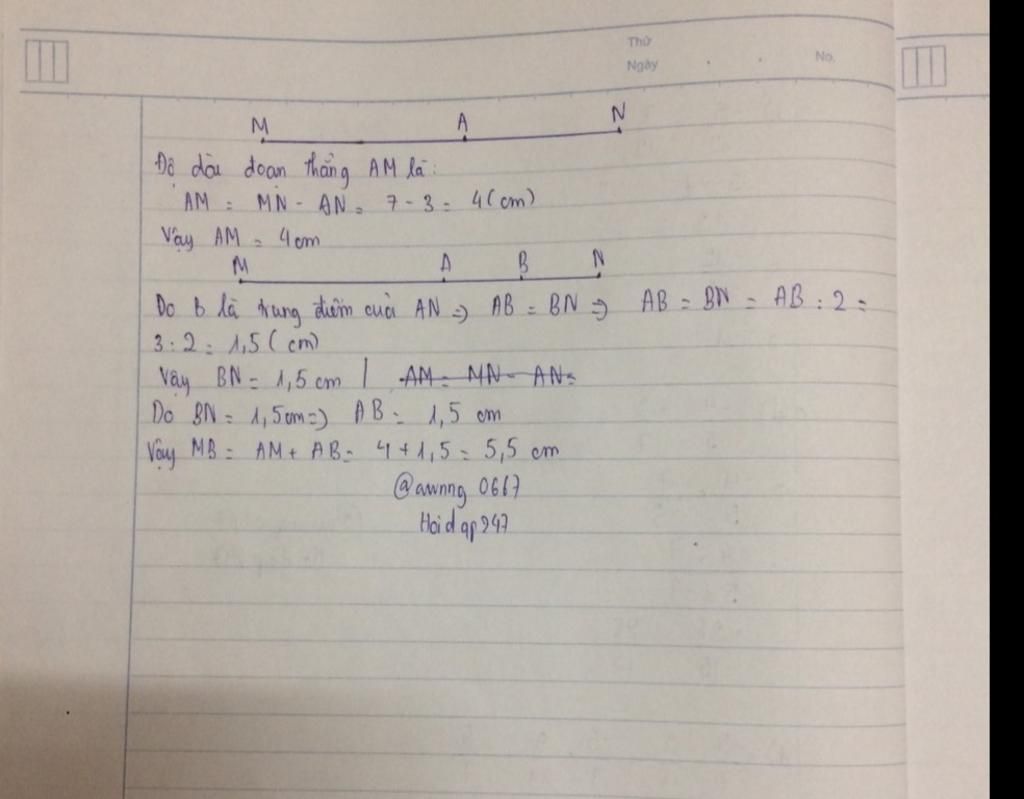 Thứ
Ngày No.
M A N
Độ dài đoạn thẳng AM là:
AM = MN - AN = 7 - 3 = 4 (cm)
Vậy AM = 4cm
M A B N
Do B là trung điểm của AN => AB = BN => AB = BN = AB : 2 =
3 : 2 = 1,5 (cm)
Vậy BN = 1,5 cm | AM = MN - AN =
Do BN = 1,5cm => AB = 1,5 cm
Vậy MB = AM + AB = 4 + 1,5 = 5,5 cm
@awnng 0667
Hoidap247